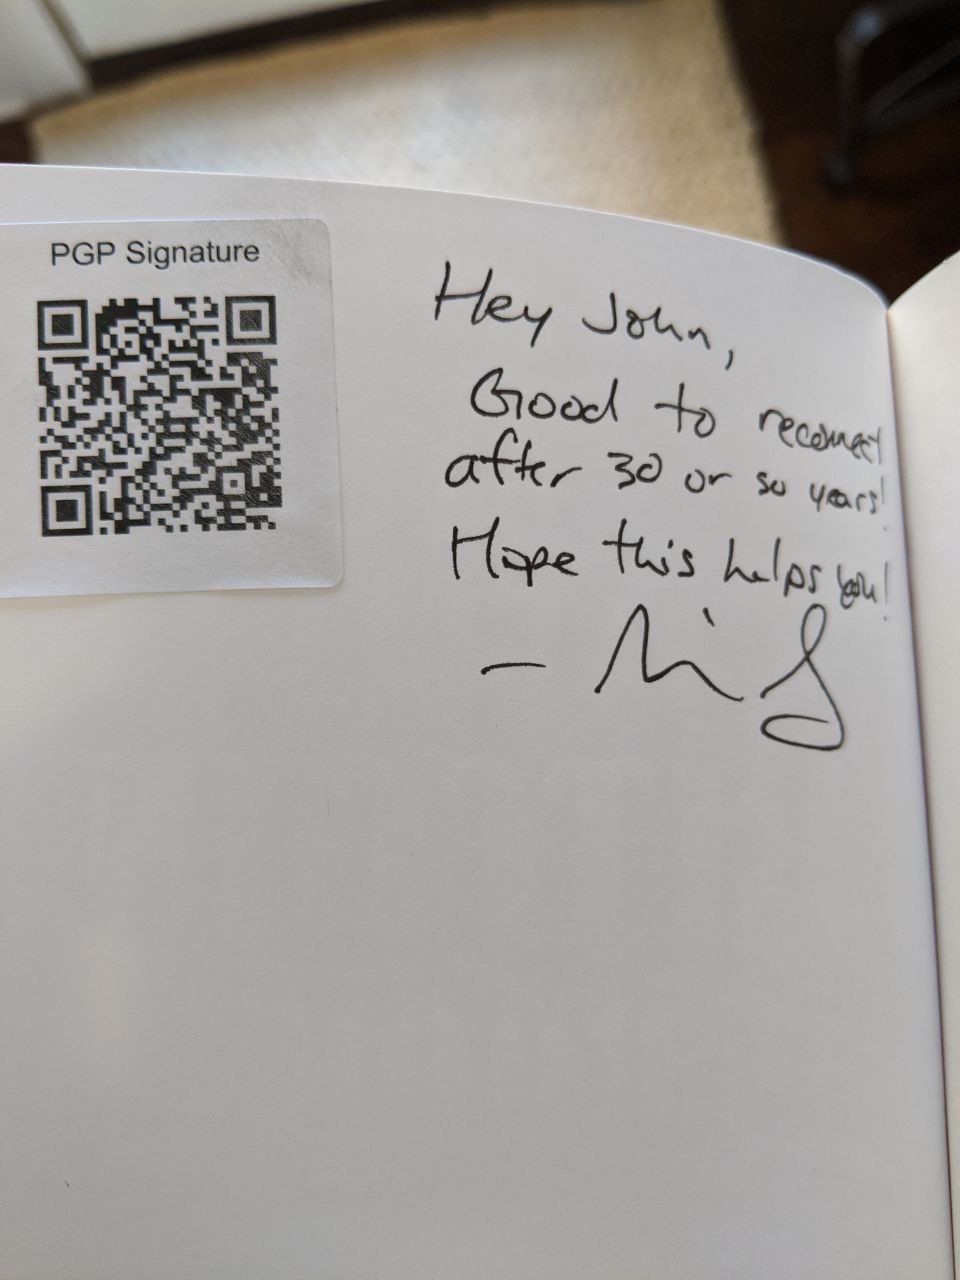 PGP Signature
Hey John,
Good to reconnect
after 30 or so years!
Hope this helps you!